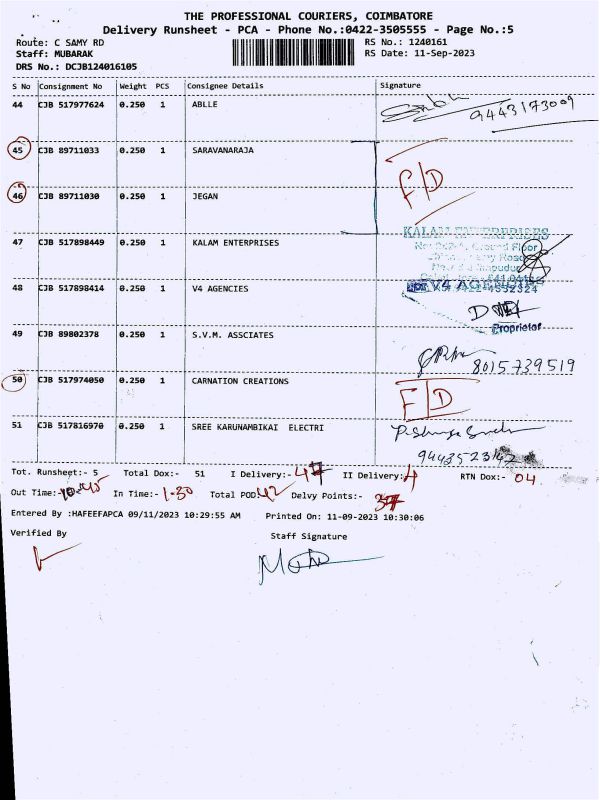 THE PROFESSIONAL COURIERS, COIMBATORE
Delivery Runsheet - PCA - Phone No.:0422-3505555 - Page No.:5
Route: C SAMY RD RS No.: 1240161
Staff: MUBARAK RS Date: 11-Sep-2023
DRS No.: DCJB124016105
S No Consignment No Weight PCS Consignee Details Signature
44 CJB 517977624 0.250 1 ABLLE 9443173009
45 CJB 89711033 0.250 1 SARAVANARAJA
F/D
46 CJB 89711030 0.250 1 JEGAN
KALAM ENTERPRISES
47 CJB 517898449 0.250 1 KALAM ENTERPRISES
48 CJB 517898414 0.250 1 V4 AGENCIES
V4 AGENCIES
Proprietor
49 CJB 89802378 0.250 1 S.V.M. ASSCIATES
8015739519
50 CJB 517974050 0.250 1 CARNATION CREATIONS
F/D
51 CJB 517816970 0.250 1 SREE KARUNAMBIKAI ELECTRI
Tot. Runsheet:- 5 Total Dox:- 51 I Delivery:- 47 II Delivery:- 4 RTN Dox:- 04
Out Time:- 10-45 In Time:- 1-30 Total POD: 42 Delvy Points:-
Entered By :HAFEEFAPCA 09/11/2023 10:29:55 AM Printed On: 11-09-2023 10:30:06
Verified By Staff Signature